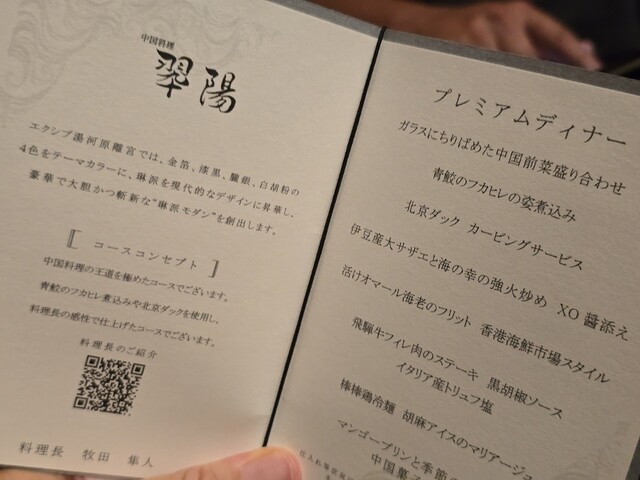 中国料理
翠陽
エクシブ湯河原離宮では、金箔、漆黒、朧銀、白胡粉の
4色をテーマカラーに、琳派を現代的なデザインに昇華し、
豪華で大胆かつ斬新な"琳派モダン"を創出します。
〚 コースコンセプト 〛
中国料理の王道を極めたコースでございます。
青鮫のフカヒレ煮込みや北京ダックを使用し、
料理長の感性で仕上げたコースでございます。
料理長のご紹介
料理長 牧田 隼人
プレミアムディナー
ガラスにちりばめた中国前菜盛り合わせ
青鮫のフカヒレの姿煮込み
北京ダック カービングサービス
伊豆産大サザエと海の幸の強火炒め XO醤添え
活けオマール海老のフリット 香港海鮮市場スタイル
飛騨牛フィレ肉のステーキ 黒胡椒ソース
イタリア産トリュフ塩
棒棒鶏冷麺 胡麻アイスのマリアージュ
マンゴープリンと季節の
中国菓子
仕入れ等